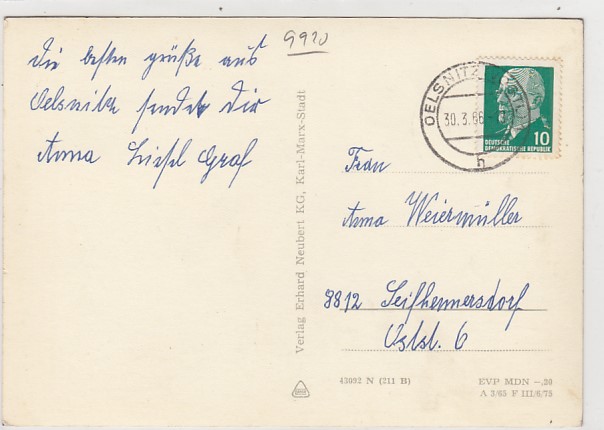 9920
die besten grüße aus
Oelsnitz sendet Dir
Anna Liesel Graf
Verlag Erhard Neubert KG, Karl-Marx-Stadt
OELSNITZ
30.3.66
h
10
DEUTSCHE
DEMOKRATISCHE REPUBLIK
Frau
Anna Weiermüller
8812 Seifhennersdorf
Oststr. 6
43092 N (211 B)
EVP MDN –.20
A 3/65 F III/6/75